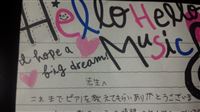 Hello Hello
I hope a
big dream!
Music
先生へ
これまでピアノを教えてもらいありがとうございま